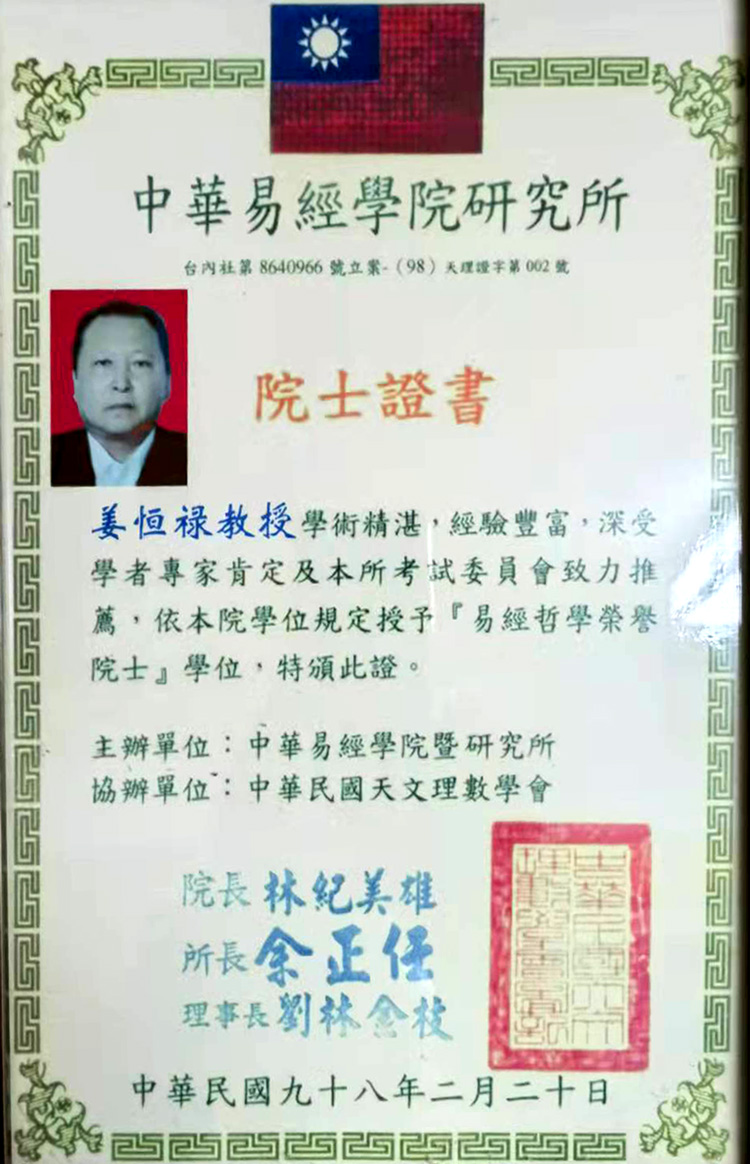 中華易經學院研究所
台內社第 8640966 號立案-（98）天理證字第 002 號
院士證書
姜恒禄教授學術精湛，經驗豐富，深受
學者專家肯定及本所考試委員會致力推
薦，依本院學位規定授予『易經哲學榮譽
院士』學位，特頒此證。
主辦單位：中華易經學院暨研究所
協辦單位：中華民國天文理數學會
院長 林紀美雄
所長 余正任
理事長 劉林金枝
中華民國九十八年二月二十日